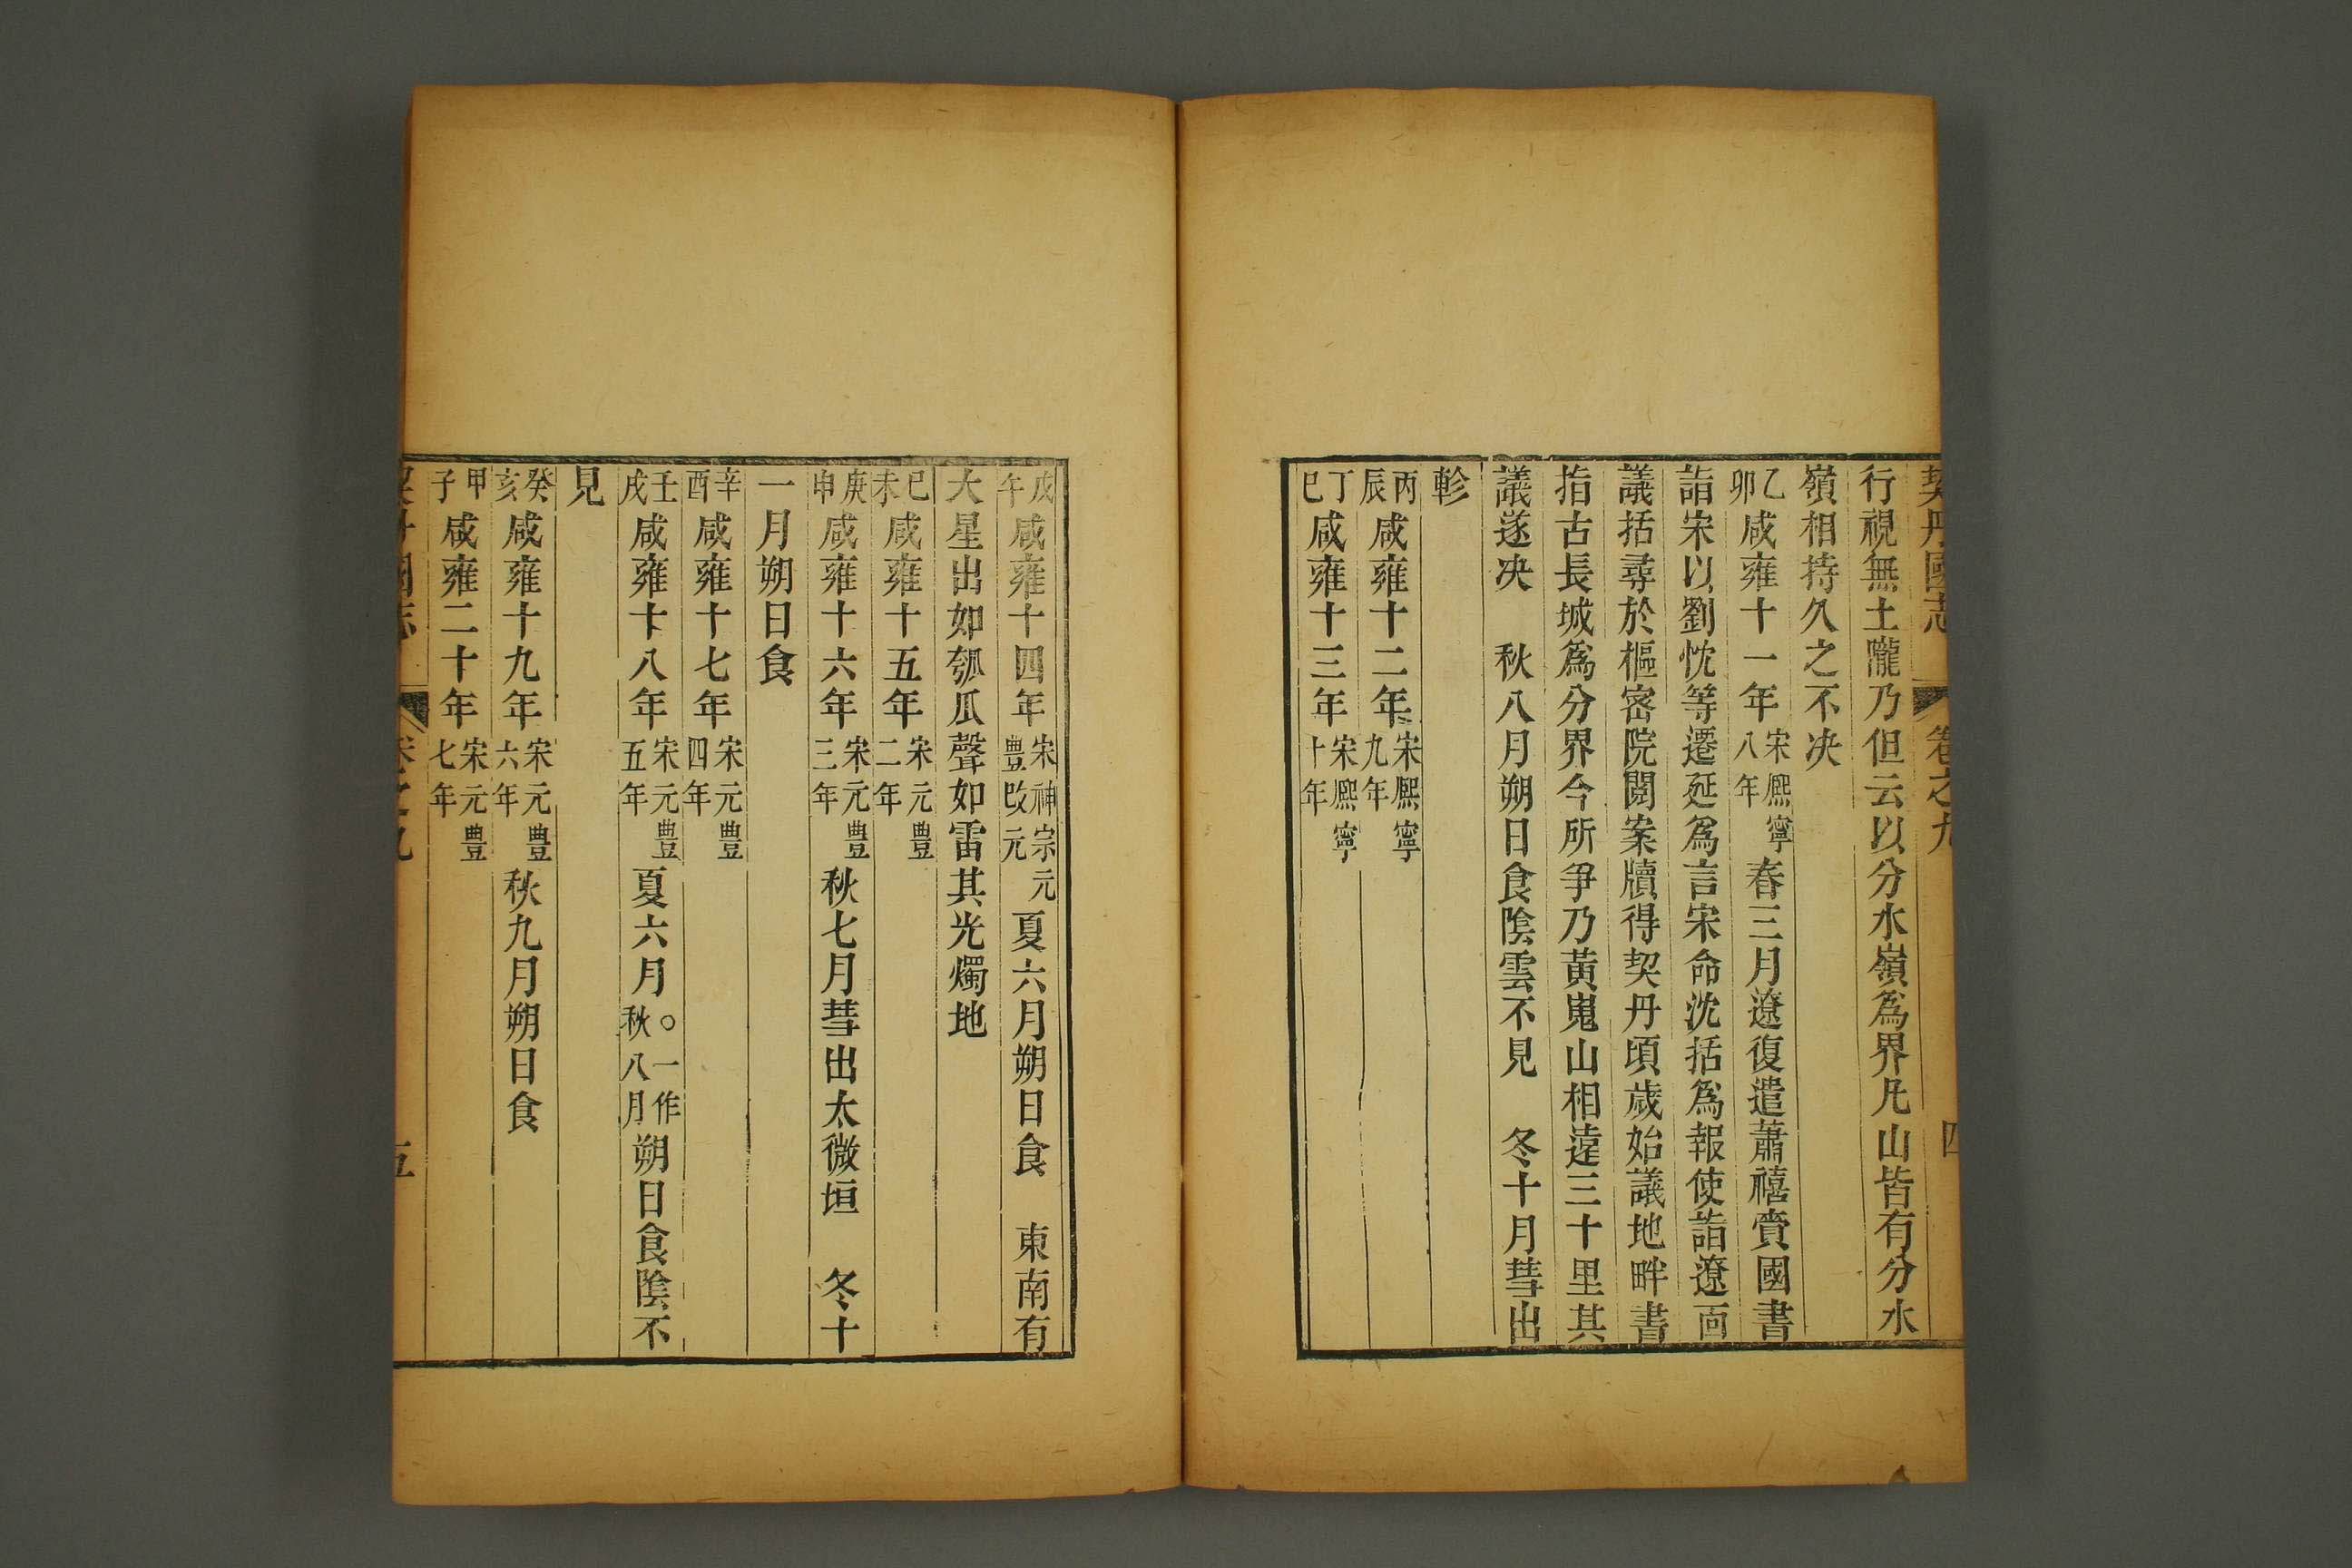 契丹國志 卷之九 四
行視無土隴乃但云以分水嶺爲界凡山皆有分水
嶺相持久之不决
乙卯咸雍十一年宋熙寧八年春三月遼復遣蕭禧賫國書
詣宋以劉忱等遷延爲言宋命沈括爲報使詣遼面
議括尋於樞密院閱案牘得契丹頃歲始議地畔書
指古長城爲分界今所爭乃黃嵬山相遠三十里其
議遂决　秋八月朔日食陰雲不見　冬十月彗出
軫
丙辰咸雍十二年宋熙寧九年
丁巳咸雍十三年宋熙寧十年
戊午咸雍十四年宋神宗元豐改元夏六月朔日食　東南有
大星出如瓠瓜聲如雷其光燭地
己未咸雍十五年宋元豐二年
庚申咸雍十六年宋元豐三年秋七月彗出太微垣　冬十
一月朔日食
辛酉咸雍十七年宋元豐四年
壬戌咸雍十八年宋元豐五年夏六月○一作秋八月朔日食陰不
見
癸亥咸雍十九年宋元豐六年秋九月朔日食
甲子咸雍二十年宋元豐七年
契丹國志 卷之九 五